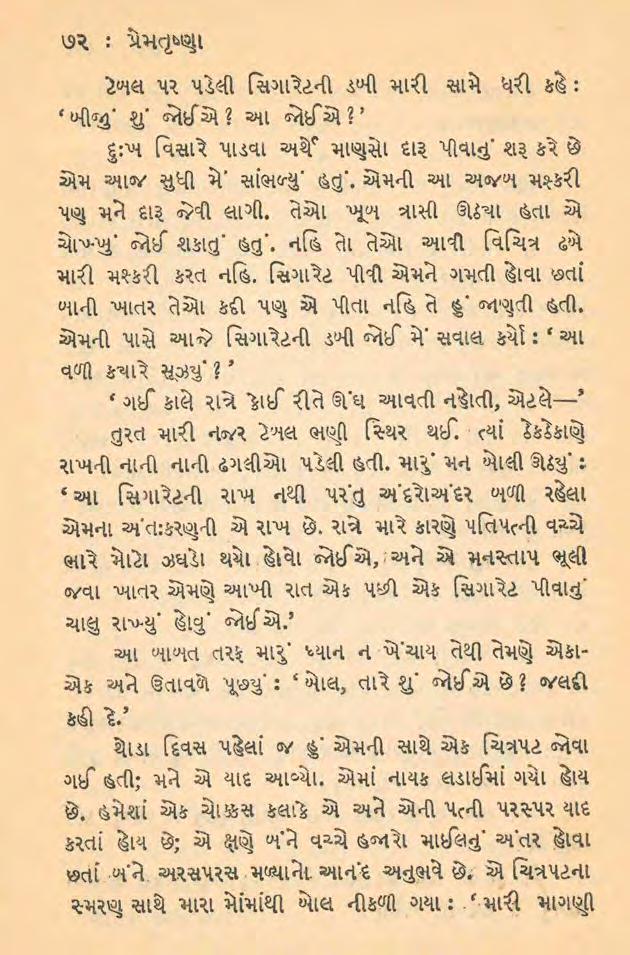 ૭૨ : પ્રેમતૃષ્ણા
ટેબલ પર પડેલી સિગારેટની ડબી મારી સામે ધરી કહે :
‘બીજું શું જોઈએ? આ જોઈએ?’
દુઃખ વિસારે પાડવા અર્થે માણસો દારૂ પીવાનું શરૂ કરે છે
એમ આજ સુધી મેં સાંભળ્યું હતું. એમની આ અજબ મશ્કરી
પણ મને દારૂ જેવી લાગી. તેઓ ખૂબ ત્રાસી ઊઠ્યા હતા એ
ચોખ્ખું જોઈ શકાતું હતું. નહિ તો તેઓ આવી વિચિત્ર ઢબે
મારી મશ્કરી કરત નહિ. સિગારેટ પીવી એમને ગમતી હોવા છતાં
બાની ખાતર તેઓ કદી પણ એ પીતા નહિ તે હું જાણતી હતી.
એમની પાસે આજે સિગારેટની ડબી જોઈ મેં સવાલ કર્યો : ‘આ
વળી ક્યારે સૂઝયું?’
‘ગઈ કાલે રાત્રે કોઈ રીતે ઊંઘ આવતી નહોતી, એટલે—’
તુરત મારી નજર ટેબલ ભણી સ્થિર થઈ. ત્યાં ઠેકઠેકાણે
રાખની નાની નાની ઢગલીઓ પડેલી હતી. મારું મન બોલી ઊઠ્યું :
‘આ સિગારેટની રાખ નથી પરંતુ અંદરોઅંદર બળી રહેલા
એમના અંતઃકરણની એ રાખ છે. રાત્રે મારે કારણે પતિપત્ની વચ્ચે
ભારે મોટો ઝઘડો થયો હોવો જોઈએ, અને એ મનસ્તાપ ભૂલી
જવા ખાતર એમણે આખી રાત એક પછી એક સિગારેટ પીવાનું
ચાલુ રાખ્યું હોવું જોઈએ.’
આ બાબત તરફ મારું ધ્યાન ન ખેંચાય તેથી તેમણે એકા-
એક અને ઉતાવળે પૂછયું : ‘બોલ, તારે શું જોઈએ છે? જલદી
કહી દે.’
થોડા દિવસ પહેલાં જ હું એમની સાથે એક ચિત્રપટ જોવા
ગઈ હતી; મને એ યાદ આવ્યો. એમાં નાયક લડાઈમાં ગયો હોય
છે. હમેશાં એક ચોક્કસ કલાકે એ અને એની પત્ની પરસ્પર યાદ
કરતાં હોય છે; એ ક્ષણે બંને વચ્ચે હજારો માઈલનું અંતર હોવા
છતાં બંને અરસપરસ મળ્યાનો આનંદ અનુભવે છે. એ ચિત્રપટના
સ્મરણ સાથે મારા મોંમાંથી બોલ નીકળી ગયા : ‘મારી માગણી